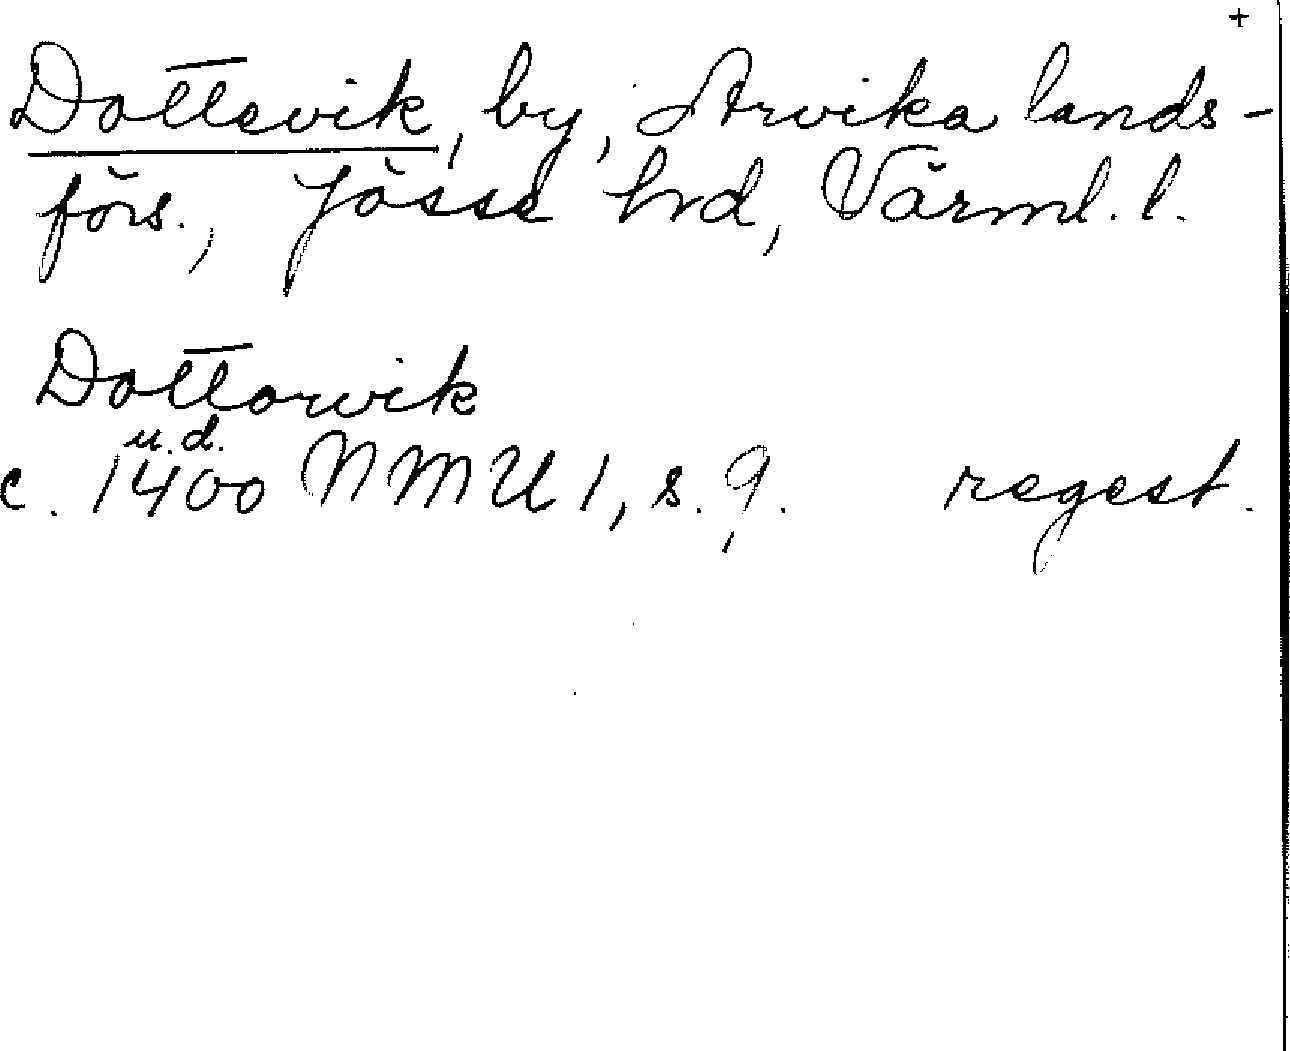 +
Dottevik, by, Arvika lands-
förs., Jösse hrd, Värml. l.
Dottorvik
u.d.
c. 1400 NMU 1, s. 9. regest.